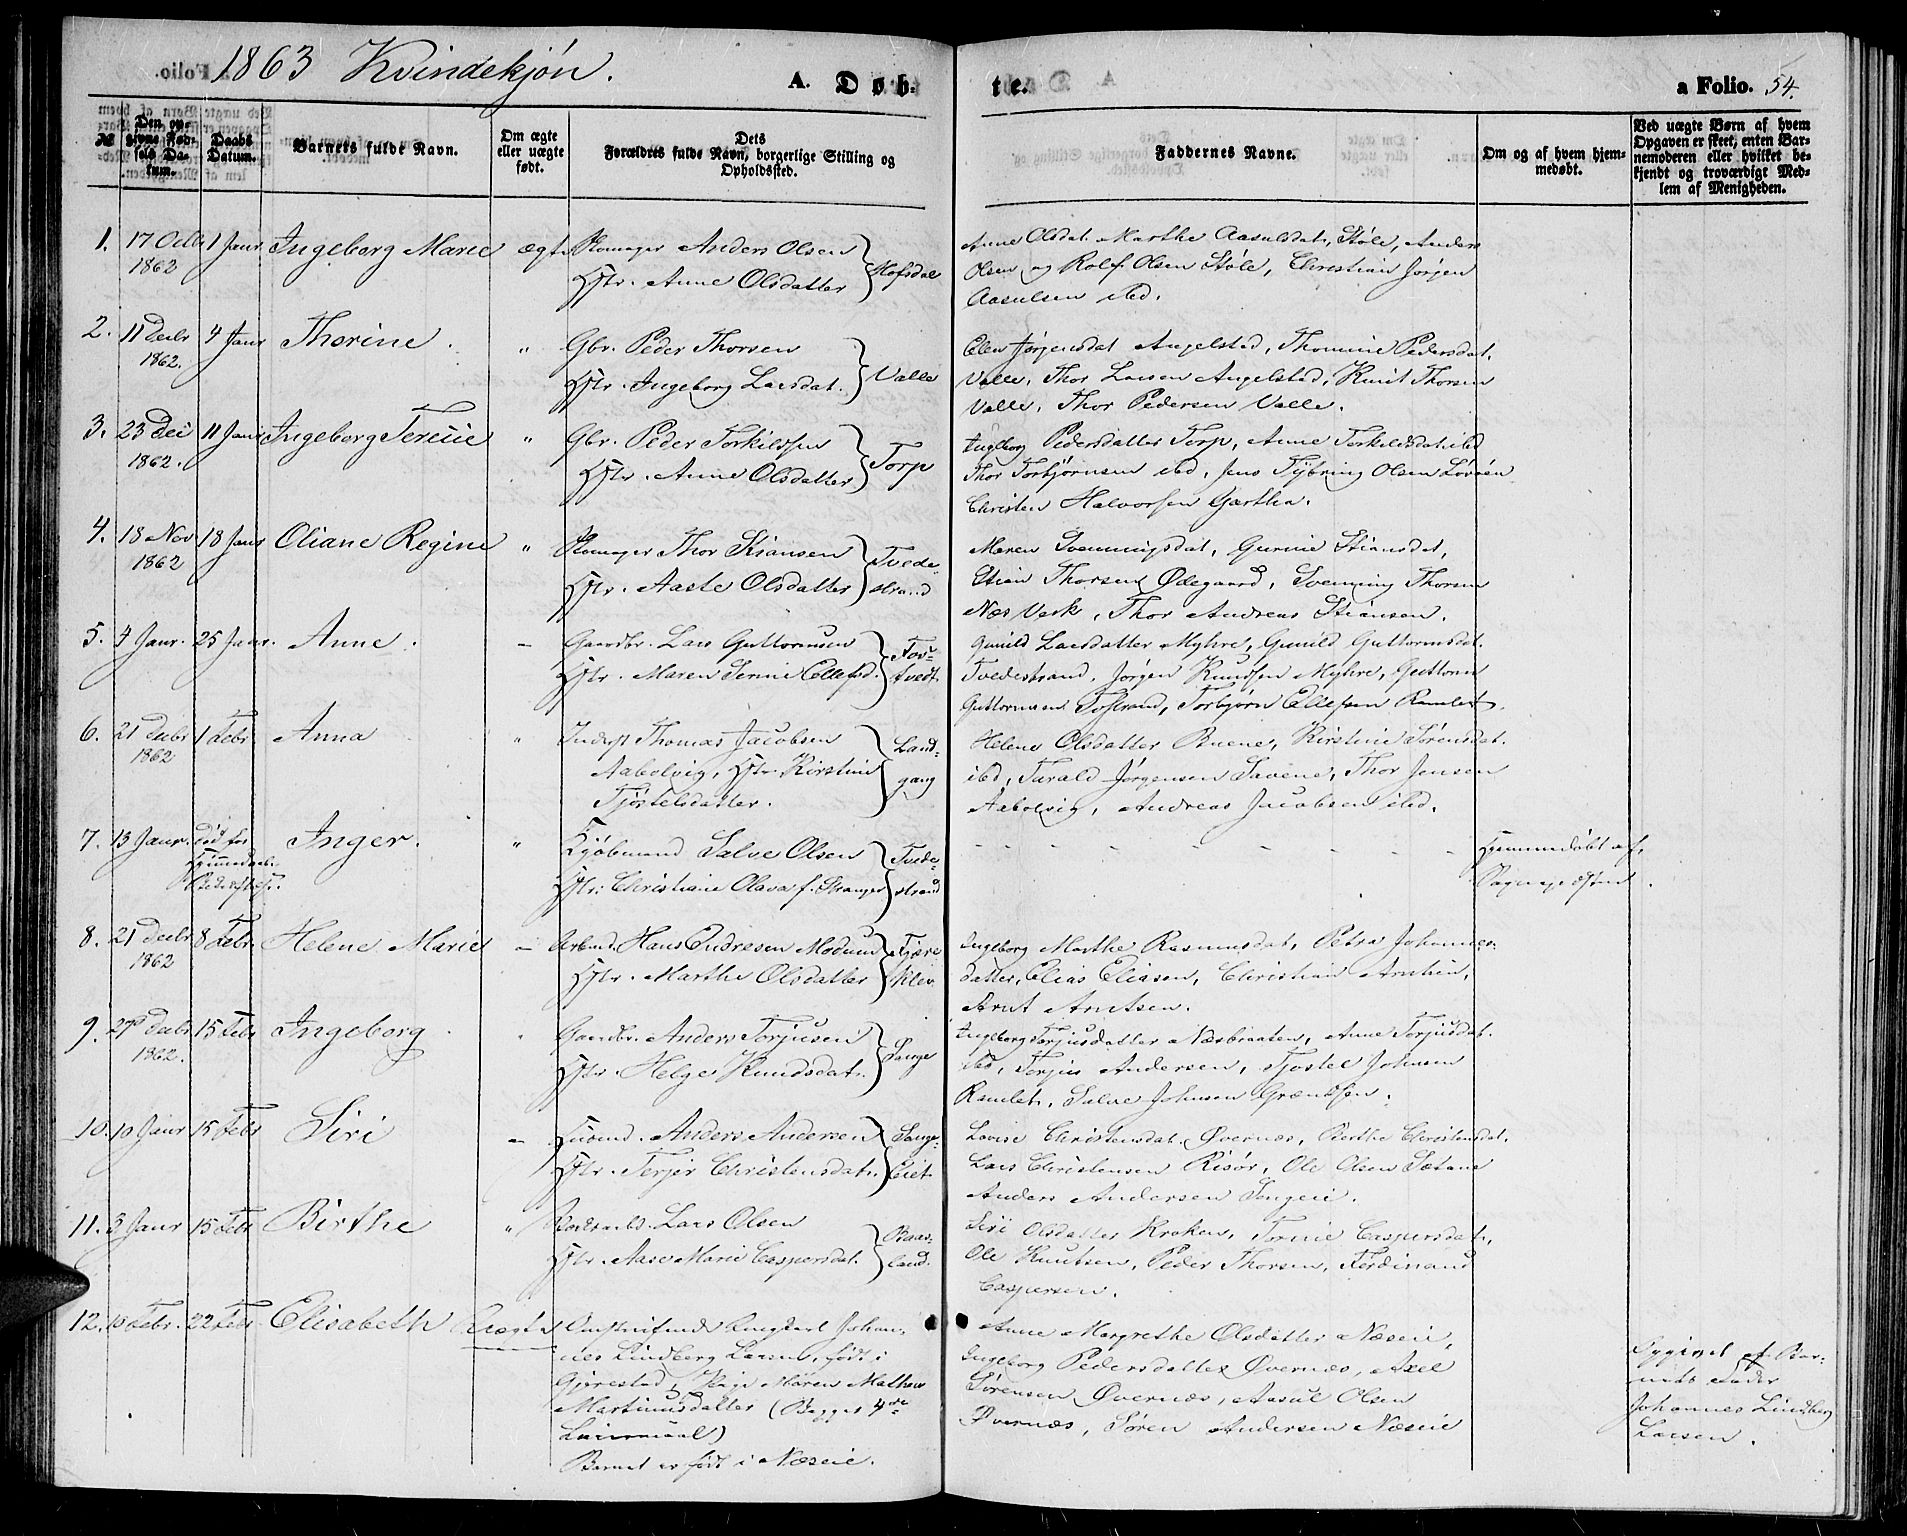 1863 Kvindekjøn.
A. Døb-
te.
a Folio. 54.
No
Den op-
givne Fød-
sels Da-
tum.
Daabs
Datum.
Barnets fulde Navn.
Om ægte
eller uægte
født.
Dets
Forældres fulde Navn, borgerlige Stilling og
Opholdssted.
Faddernes Navne.
Om og af hvem hjem-
medøbt.
Ved uægte Børn af hvem
Opgaven er skeet, enten Bar-
nemoderen eller hvilket be-
kjendt og troværdigt Med-
lem af Menigheden.
1. 17 Octbr 1 Janr Ingeborg Marie ægte Skomager Anders Olsen
1862 Hstr. Anne Olsdatter Hofsdal
Anne Olsdat. Marthe Aasulsdat, Støle, Anders
Olsen og Rolf Olsen Støle, Christian Jørgen
Aasulsen ibd.
2. 11 Decbr 4 Janr Thorine " Gbr. Peder Thorsen
1862. Hstr. Ingeborg Larsdat. Valle
Elen Jørgensdat Angelstad, Thomine Pedersdat.
Valle, Thor Larsen Angelstad, Knut Thorsen
Valle, Thor Pedersen Valle.
3. 23 Dec 11 Janr Ingeborg Teresie " Gbr. Peder Torkildsen
1862. Hstr. Anne Olsdatter Torp
Ingeborg Pedersdatter Torp, Anne Torkildsdat ibd
Thor Torbjørnsen ibd, Jens Tybring Olsen
Christen Halvorsen Gjartha.
4. 18 Nov 18 Janr Oliane Regine " Skomager Thor Stiansen
1862 Hstr. Aaste Olsdatter Tvede-
strand
Maren Svenningsdat, Gurine Stiansdat,
Stian Thorsen Ødegaard, Svenning Thorsen
Næs Verk, Thor Andreas Stiansen.
5. 4 Janr. 25 Janr. Anne. - Gaardbr. Lars Guttormsen
Hstr. Maren Serine Ellefsd. Tov-
tvedt.
Gunild Larsdatter Myhre, Gunild Guttormsdat.
Tvedestrand, Jørgen Knudsen Myhre, Guttorm
Guttormsen Tostrand, Torbjørn Ellefsen Ramlet.
6. 21 Decbr 1 Febr Anna " Inderst Thomas Jacobsen
1862 Aabolvig, Hstr. Kirstine Land-
gang
Tjøstelsdatter.
Helene Olsdatter Buene, Kirstine Sørensdat.
ibd, Tarald Jørgensen Savene, Thor Jensen
Aabolvig, Andreas Jacobsen ibd.
7. 13 Janr. død før Inger. " Kjøbmand Salve Olsen
Hstr. Christiane Olava f. Stranger Tvede-
strand
Hjemmedøbt af
Sognepræsten.
8. 21 Decbr 8 Febr. Helene Marie - Arbmd. Hans Endresen Modum
1862 Hstr. Marthe Olsdatter Fjære
klev.
Ingeborg Marthe Rasmusdat, Petra Johannes-
datter, Elias Eliasen, Christian Arntsen,
Arnt Arntsen.
9. 27 Decbr 15 Febr Ingeborg " Gaardbr. Anders Torjusen
1862. Hstr. Helge Knudsdat. Sange
Ingeborg Torjusdatter Næsbraaten, Anne Torjusdat.
ibd, Torjus Andersen, Tjostel Johnsen
Ramlet, Salve Johnsen Grændsen.
10. 10 Janr 15 Febr Siri - Husmd. Anders Andersen
Hstr. Terjer Christensdat. Sange-
Eiet.
Lovise Christensdat. Øvernæs, Berthe Christensdat.
Lars Christensen Risør, Ole Olsen Sætane
Anders Andersen Songeei.
11. 3 Janr 15 Febr Birthe " Lars Olsen
Hstr. Aase Marie Caspersdat. Baas-
land.
Siri Olsdatter Kroken, Tomie Caspersdat.,
Ole Knutsen, Peder Thorsen, Ferdinand
Caspersen.
12. 10 Febr. 22 Febr Elisabeth Uægte Omstreifende Ungkarl Johan-
nes Lindberg Larsen, født i
Gjerestad, Pige Maren Mathea
Martinusdatter (Begges 4de
Leiermaal)
Barnet er født i Næseie.
Anne Margrethe Olsdatter Næseie,
Ingeborg Pedersdatter Øvernæs, Axel
Sørensen Øvernæs, Aasul Olsen
Øvernæs, Søren Andersen Næseie
Opgivet af Bar-
nets Fader
Johannes Lindberg
Larsen.